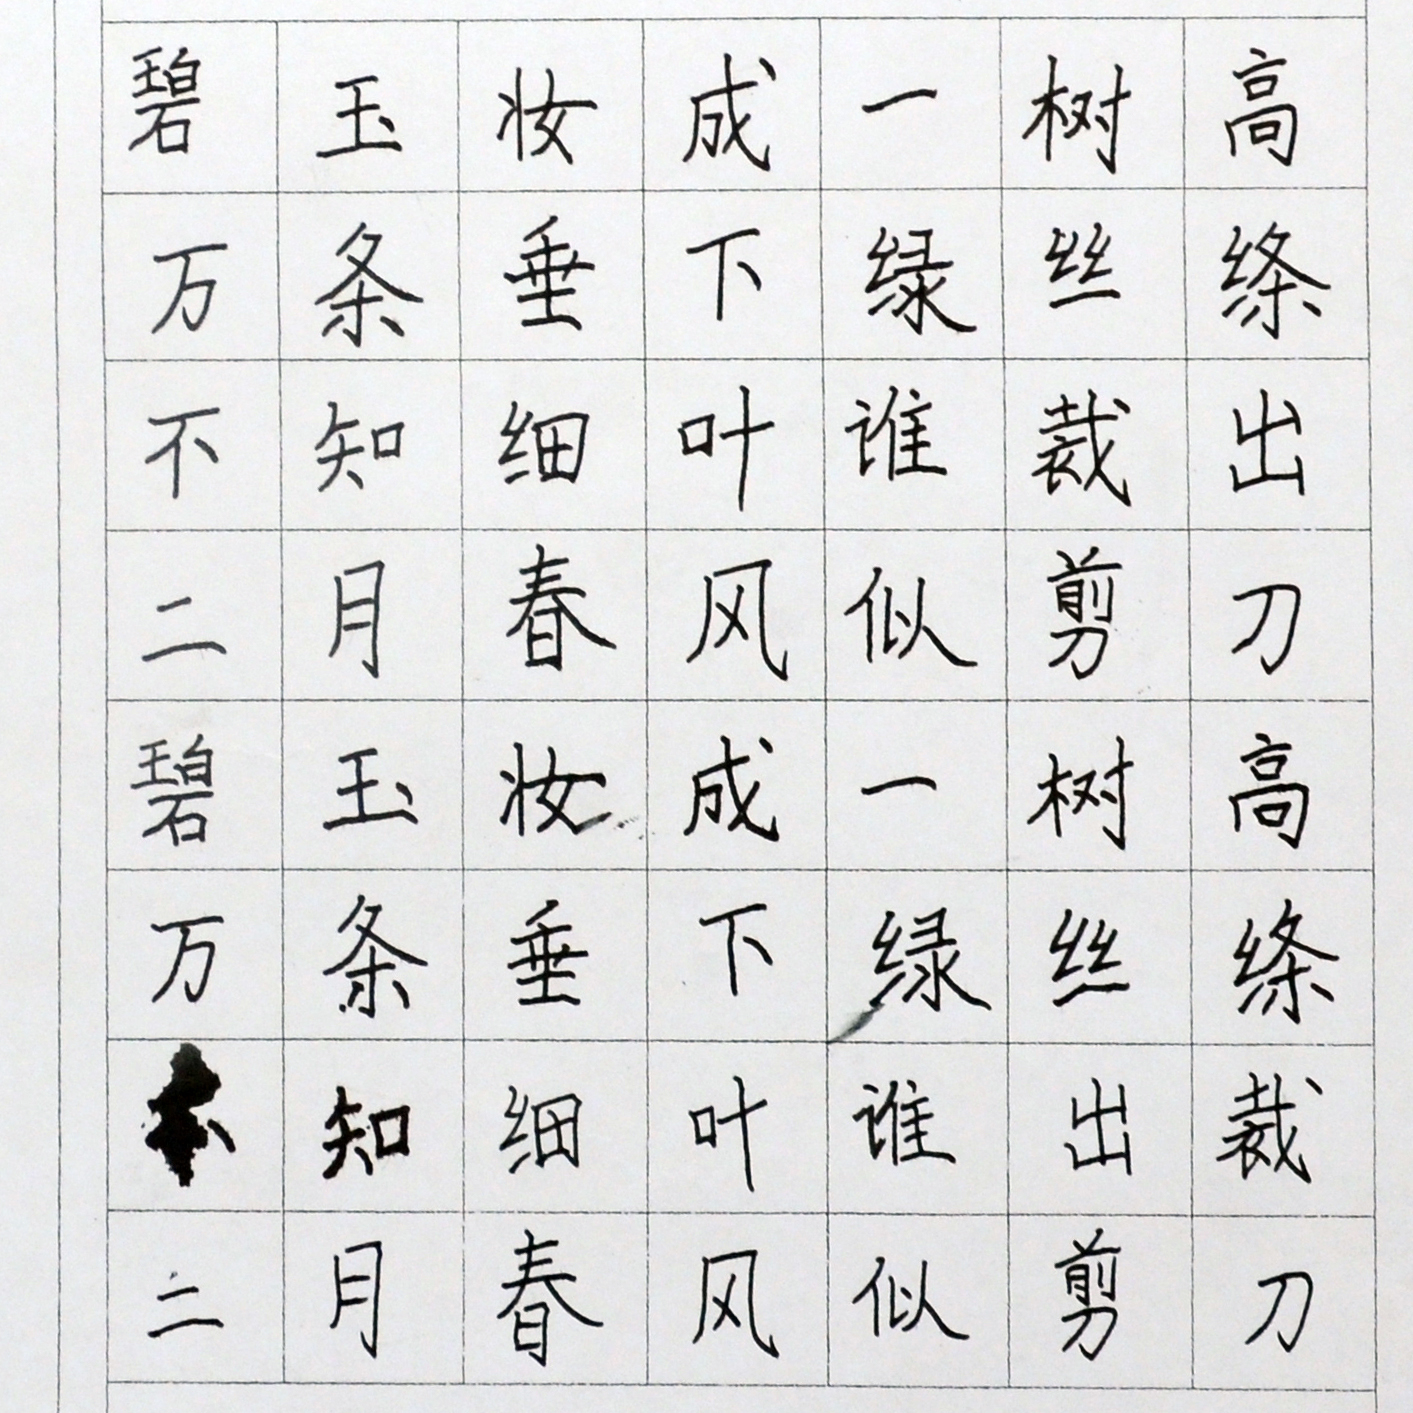 碧玉妆成一树高
万条垂下绿丝绦
不知细叶谁裁出
二月春风似剪刀
碧玉妆成一树高
万条垂下绿丝绦
知细叶谁出裁
二月春风似剪刀